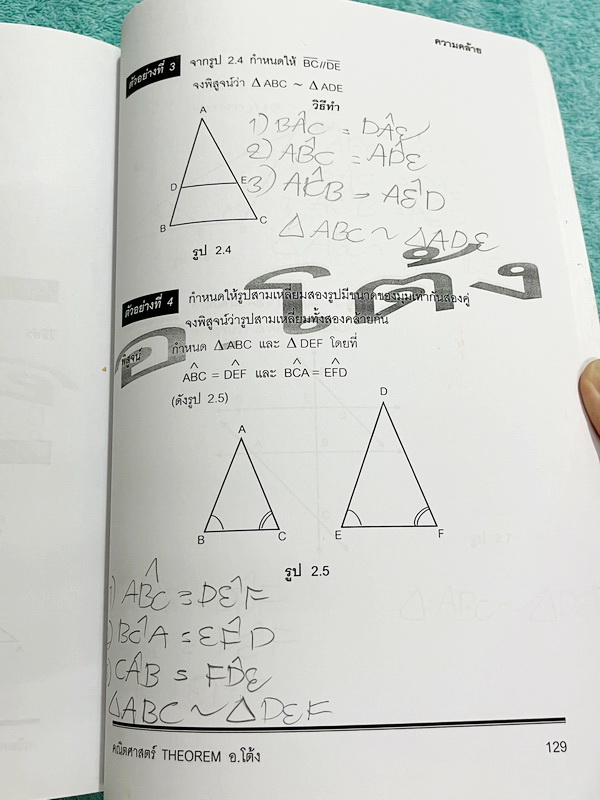 ความคล้าย
ตัวอย่างที่ 3 จากรูป 2.4 กำหนดให้ BC//DE
จงพิสูจน์ว่า Δ ABC ~ Δ ADE
วิธีทำ
A
D
E
B
C
1) BÂC = DÂE
2) AB̂C = AD̂E
3) AĈB = AÊD
Δ ABC ~ Δ ADE
รูป 2.4
ตัวอย่างที่ 4 กำหนดให้รูปสามเหลี่ยมสองรูปมีขนาดของมุมเท่ากันสองคู่
จงพิสูจน์ว่ารูปสามเหลี่ยมทั้งสองคล้ายกัน
อ โต้ง
พิสูจน์ กำหนด ΔABC และ Δ DEF โดยที่
AB̂C = DÊF และ BĈA = EF̂D
(ดังรูป 2.5)
A
B
C
D
E
F
รูป 2.5
) AB̂C = DÊF
) BĈA = EF̂D
) CÂB = FD̂E
ΔABC ~ ΔDEF
คณิตศาสตร์ THEOREM อ.โต้ง
129